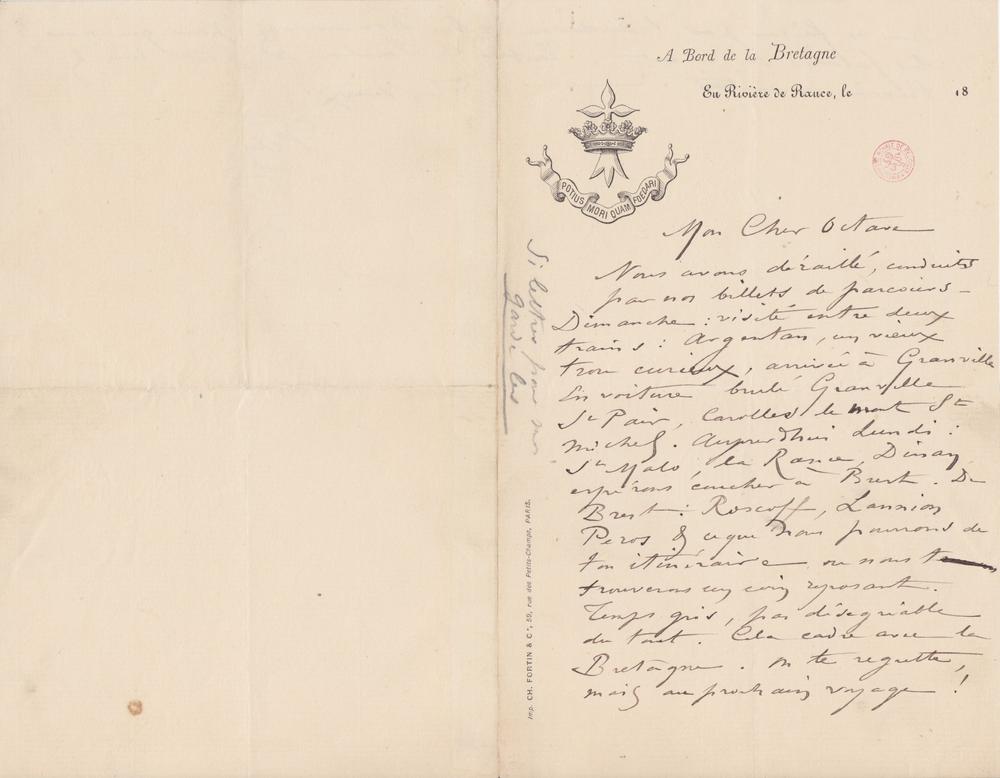 A Bord de la Bretagne
En Rivière de Rance, le 18
POTIUS MORI QUAM FOEDARI
Mon Cher Octave
Nous avons déraillé, conduits
par nos billets de parcours -
Dimanche : visité entre deux
trains : Argentan, un vieux
trou curieux, arrivée à Granville
En voiture brulé Granville
St Pair, Carolles le mont St
Michel. Aujourdhui Lundi :
St Malo, la Rance, Dinan
espérons coucher à Brest. De
Brest : Roscoff, Lannion
Peros & ce que nous pourrons de
ton itinéraire ou nous
trouverons un coin reposant.
Temps gris, pas désagréable
du tout. Cela cadre avec la
Bretagne. On te regrette,
mais au prochain voyage !
Si lettres pour moi
garde les
Imp. CH. FORTIN & Cie, 59, rue des Petits-Champs, PARIS.